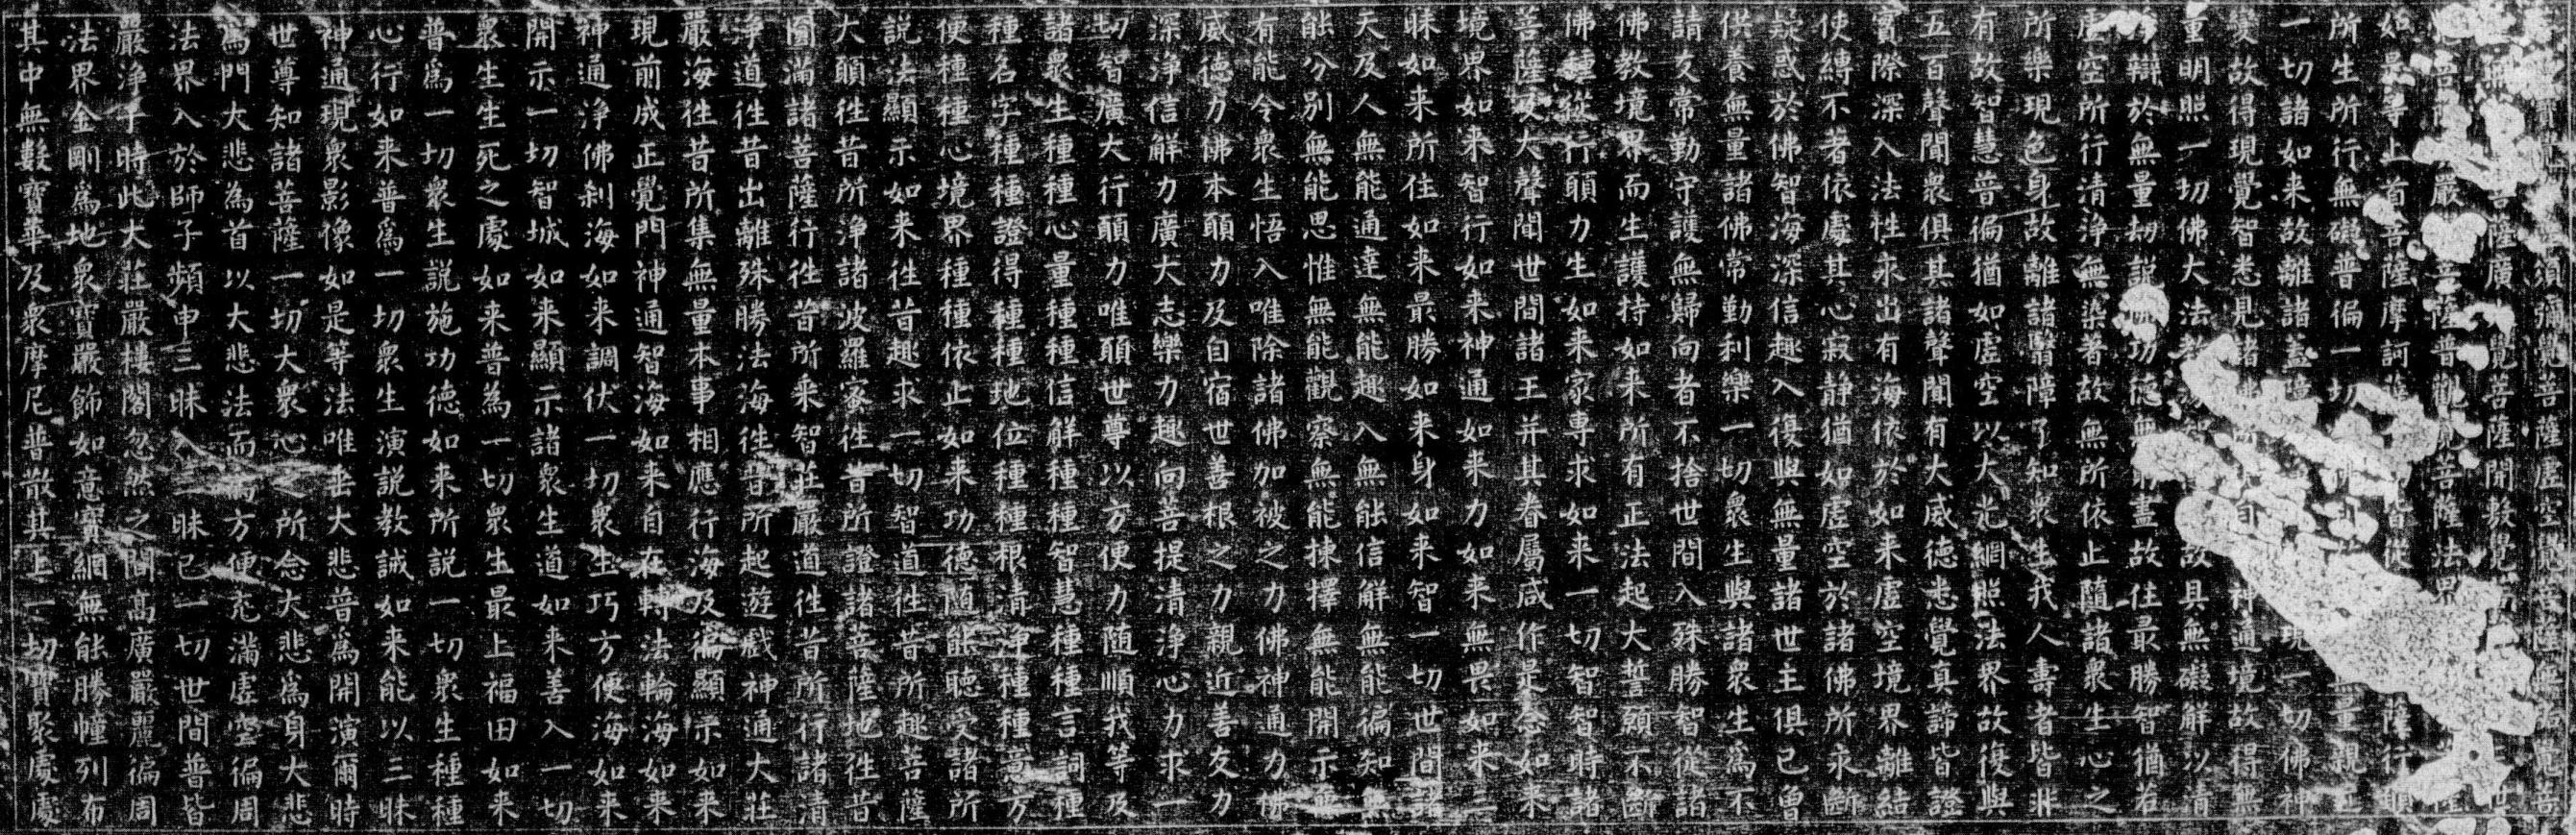 須彌光覺菩薩虛空覺菩薩無
菩薩廣 覺菩薩開敷覺
嚴 菩薩普觀 菩薩法界
如是等上首菩薩摩訶薩
所生所行無礙普徧一切 無量親近
一切諸如来故離諸蓋障 現一切佛神
變故得現覺智悉見諸佛 神通境故得無
量明照一切佛大法 知 故具無礙解以清
辯於無量劫說 功德無有盡故住最勝智猶若
虛空所行清淨無染著故無所依止隨諸衆生心之
所樂現色身故離諸翳障了知衆生我人壽者皆非
有故智慧普徧猶如虛空以大光網照法界故復與
五百聲聞衆俱其諸聲聞有大威德悉覺真諦皆證
實際深入法性永出有海依於如来虛空境界離結
使縛不著依處其心寂靜猶如虛空於諸佛所永斷
疑惑於佛智海深信趣入復與無量諸世主俱已曾
供養無量諸佛常勤利樂一切衆生與諸衆生爲不
請友常勤守護無歸向者不捨世間入殊勝智從諸
佛教境界而生護持如来所有正法起大誓願不斷
佛種從行願力生如来家專求如来一切智智時諸
菩薩及大聲聞世間諸王并其眷屬咸作是念如来
境界如来智行如来神通如来力如来無畏如来三
昧如来所住如来最勝如来身如来智一切世間諸
天及人無能通達無能趣入無能信解無能徧知無
能分別無能思惟無能觀察無能揀擇無能開示無
有能令衆生悟入唯除諸佛加被之力佛神通力佛
威德力佛本願力及自宿世善根之力親近善友力
深淨信解力廣大志樂力趣向菩提清淨心力求一
切智廣大行願力唯願世尊以方便力隨順我等及
諸衆生種種心量種種信解種種智慧種種言詞種
種名字種種證得種種地位種種根清淨種種意方
便種種心境界種種依止如来功德隨能聽受諸所
說法顯示如来徃昔趣求一切智道徃昔所趣菩薩
大願徃昔所淨諸波羅蜜徃昔所證諸菩薩地徃昔
圓滿諸菩薩行徃昔所乘智莊嚴道徃昔所行諸清
淨道徃昔出離殊勝法海徃昔所起遊戲神通大莊
嚴海徃昔所集無量本事相應行海及徧顯示如来
現前成正覺門神通智海如来自在轉法輪海如来
神通淨佛剎海如来調伏一切衆生巧方便海如来
開示一切智城如来顯示諸衆生道如来善入一切
衆生生死之處如来普爲一切衆生最上福田如来
普爲一切衆生說施功德如来所說一切衆生種種
心行如来普爲一切衆生演說教誡如来能以三昧
神通現衆影像如是等法唯垂大悲普爲開演爾時
世尊知諸菩薩一切大衆心之所念大悲爲身大悲
爲門大悲爲首以大悲法而爲方便充滿虛空徧周
法界入於師子頻申三昧 昧已一切世間普皆
嚴淨于時此大莊嚴樓閣忽然之間高廣嚴麗徧周
法界金剛爲地衆寶嚴飾如意寶網無能勝幢列布
其中無數寶華及衆摩尼普散其上一切寶聚處處